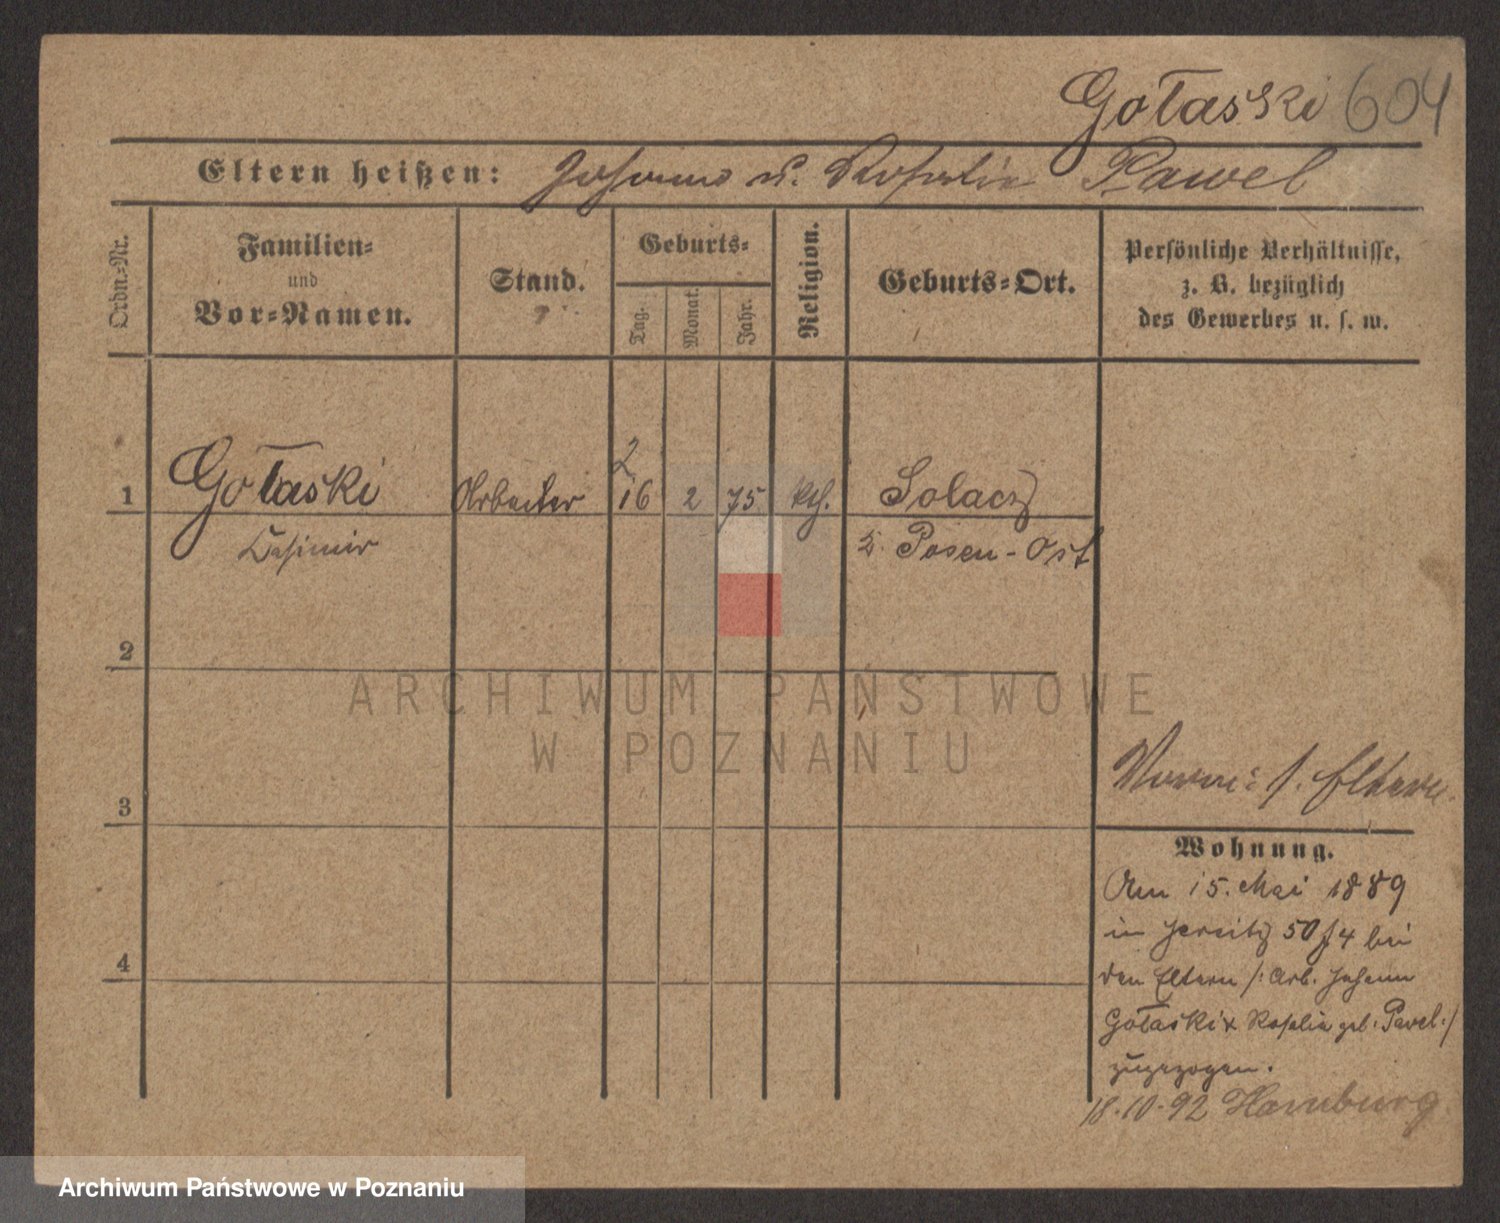 Gołaski 604
Eltern heißen: Johann u. Rosalia Pawel
Ordn.=Nr.
Familien=
und
Vor=Namen.
Stand.
Geburts=
Tag.
Monat.
Jahr.
Religion.
Geburts=Ort.
Persönliche Verhältnisse,
z. B. bezüglich
des Gewerbes u. s. w.
2
1 Gołaski Arbeiter 16 2 75 kth. Solacz
Casimir K. Posen-Ost
2
ARCHIWUM PAŃSTWOWE
W POZNANIU
3
s. Eltern
Wohnung.
Am 15. Mai 1889
in Jersitz 50/4 bei
den Eltern /: Arb. Johann
Gołaski & Rosalia geb. Pawel :/
zugezogen.
4
18.10.92 Hamburg
Archiwum Państwowe w Poznaniu